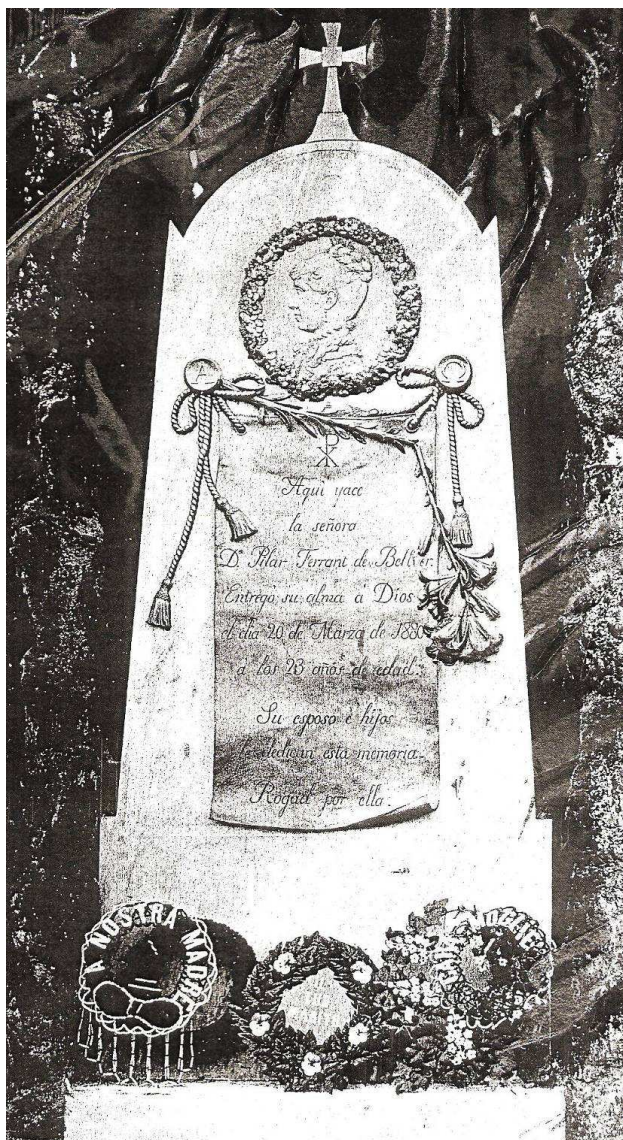 A
Ω
Aquí yace
la señora
Dª Pilar Ferrant de Bellver.
Entregó su alma á Dios
el dia 20 de Marzo de 1880
á los 23 años de edad.
Su esposo é hijos
le dedican esta memoria.
Rogad por ella.
A NOSTRA MADRE
MOGLIE